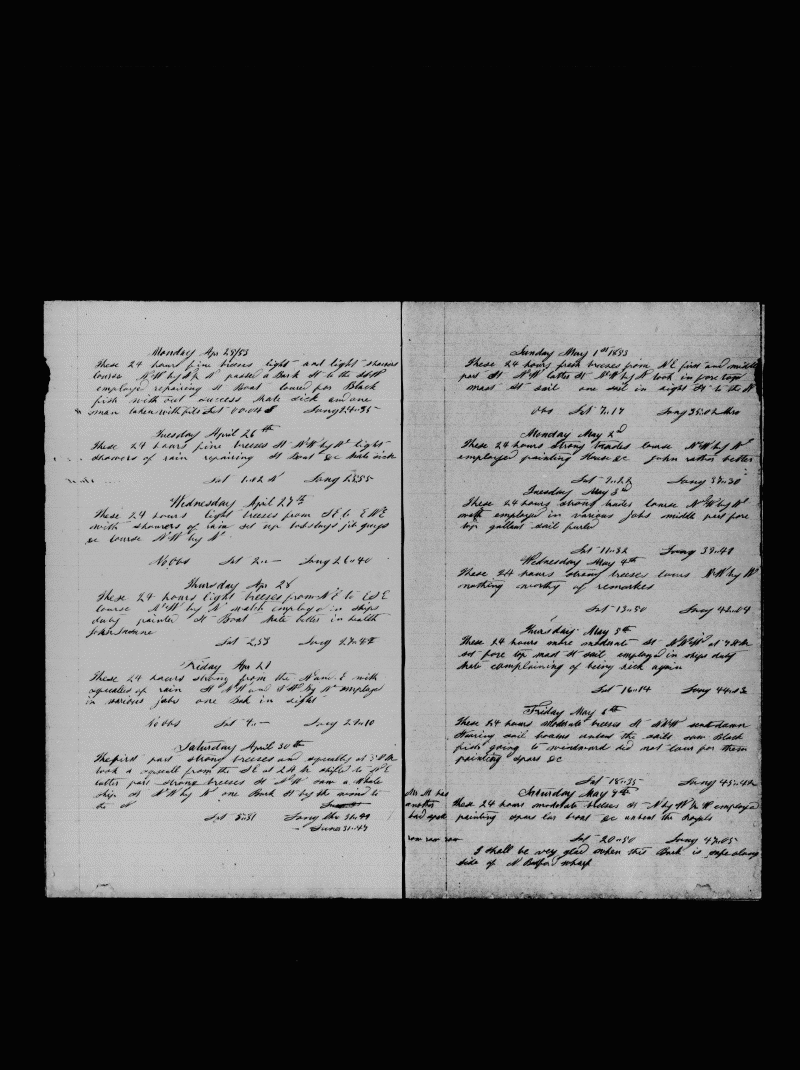 Monday Apr 25/53
These 24 hours fine breeses light and light showers
course NW by N passed a Bark St to the
employed repairing St Boat lowred for Black
fish with out success Mate sick and one
man taken with fits Lat 00.04 S Long 24.35
Tuesday April 26th
These 24 hours fine breeses St NW by N light
showers of rain repairing St Boat &c Mate sick
Lat 1.02 N Long 25.55
Wednesday April 27th
These 24 hours light breeses from SE to E NE
with showers of rain set up bobstays jib guys
&c course NW by N
No Obs Lat 2.. Long 26..40
Thursday Apr 28
These 24 hours light breeses from NE to ESE
course NW by N watch employed in ships
duty painted St Boat Mate better in health
John
Lat 2,53 Long 27..44
Friday Apr 29
These 24 hours strong from the N and E with
squalls of rain St NW and NW by N employed
in various jobs one Bark in sight
No Obs Lat 4.. Long 29..10
Saturday April 30th
The first part strong breeses and squally at 3 PM
took a squall from the SE at 2 AM shifted to NE
latter part strong breeses St NW saw a Whale
ship St NW by N one Bark St by the wind to
the N
Lat 5..51 Long 31..49
Sunday May 1st 1853
These 24 hours fresh breeses from NE first and middle
part St NW latter St NW by N took in fore top
mast St sail one sail in sight St to the N
Obs Lat 7.17 Long 35.02
Monday May 2d
These 24 hours strong trades course NW by N
employed painting House &c John rather better
Lat 9..22 Long 37..30
Tuesday May 3d
These 24 hours strong trades course NW by N
watch employed in various jobs middle part fore
top gallant sail furled
Lat 11..32 Long 39..41
Wednesday May 4th
These 24 hours strong breeses course NW by N
nothing worthy of remarks
Lat 13..50 Long 42..04
Thursday May 5th
These 24 hours more moderate St NW at 7 AM
set fore top mast St sail employed in ships duty
Mate complaining of being sick again
Lat 16..14 Long 44..03
Friday May 6th
These 24 hours moderate breeses St NW sent down
sail booms unbent the sails saw Black
fish going to windward did not lowr for them
painting spars &c
Lat 18..35 Long 45..42
Saturday May 7th
Mr H has
another
bad spell
These 24 hours moderate breeses St N by W & W employed
painting spars boat &c unbent the Royals
row row row
Lat 20..50 Long 47..05
I shall be very glad when this Bark is safe along
side of N Bedford wharf